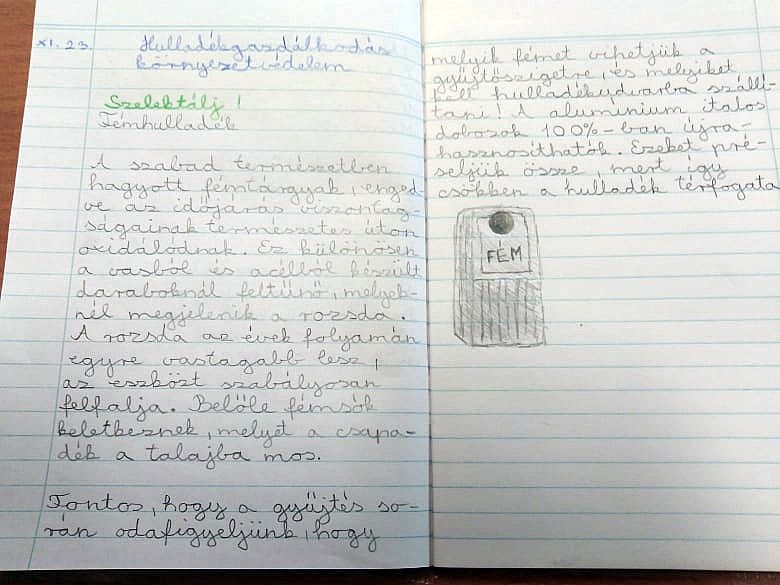 XI. 23. Hulladékgazdálkodás
környezetvédelem
Szelektálj!
Fémhulladék
A szabad természetben
hagyott fémtárgyak, enged-
ve az időjárás viszontag-
ságainak természetes úton
oxidálódnak. Ez különösen
a vasból és acélból készült
daraboknál feltűnő, melyek-
nél megjelenik a rozsda.
A rozsda az évek folyamán
egyre vastagabb lesz,
az eszközt szabályosan
felfalja. Belőle fémsók
keletkeznek, melyet a csapa-
dék a talajba mos.
Fontos, hogy a gyűjtés so-
rán odafigyeljünk, hogy
melyik fémet vihetjük a
gyűjtőszigetre, és melyiket
kell hulladékudvarba szállí-
tani! A alumínium italos
dobozok 100%-ban újra-
hasznosíthatók. Ezeket pré-
seljük össze, mert így
csökken a hulladék térfogata
FÉM